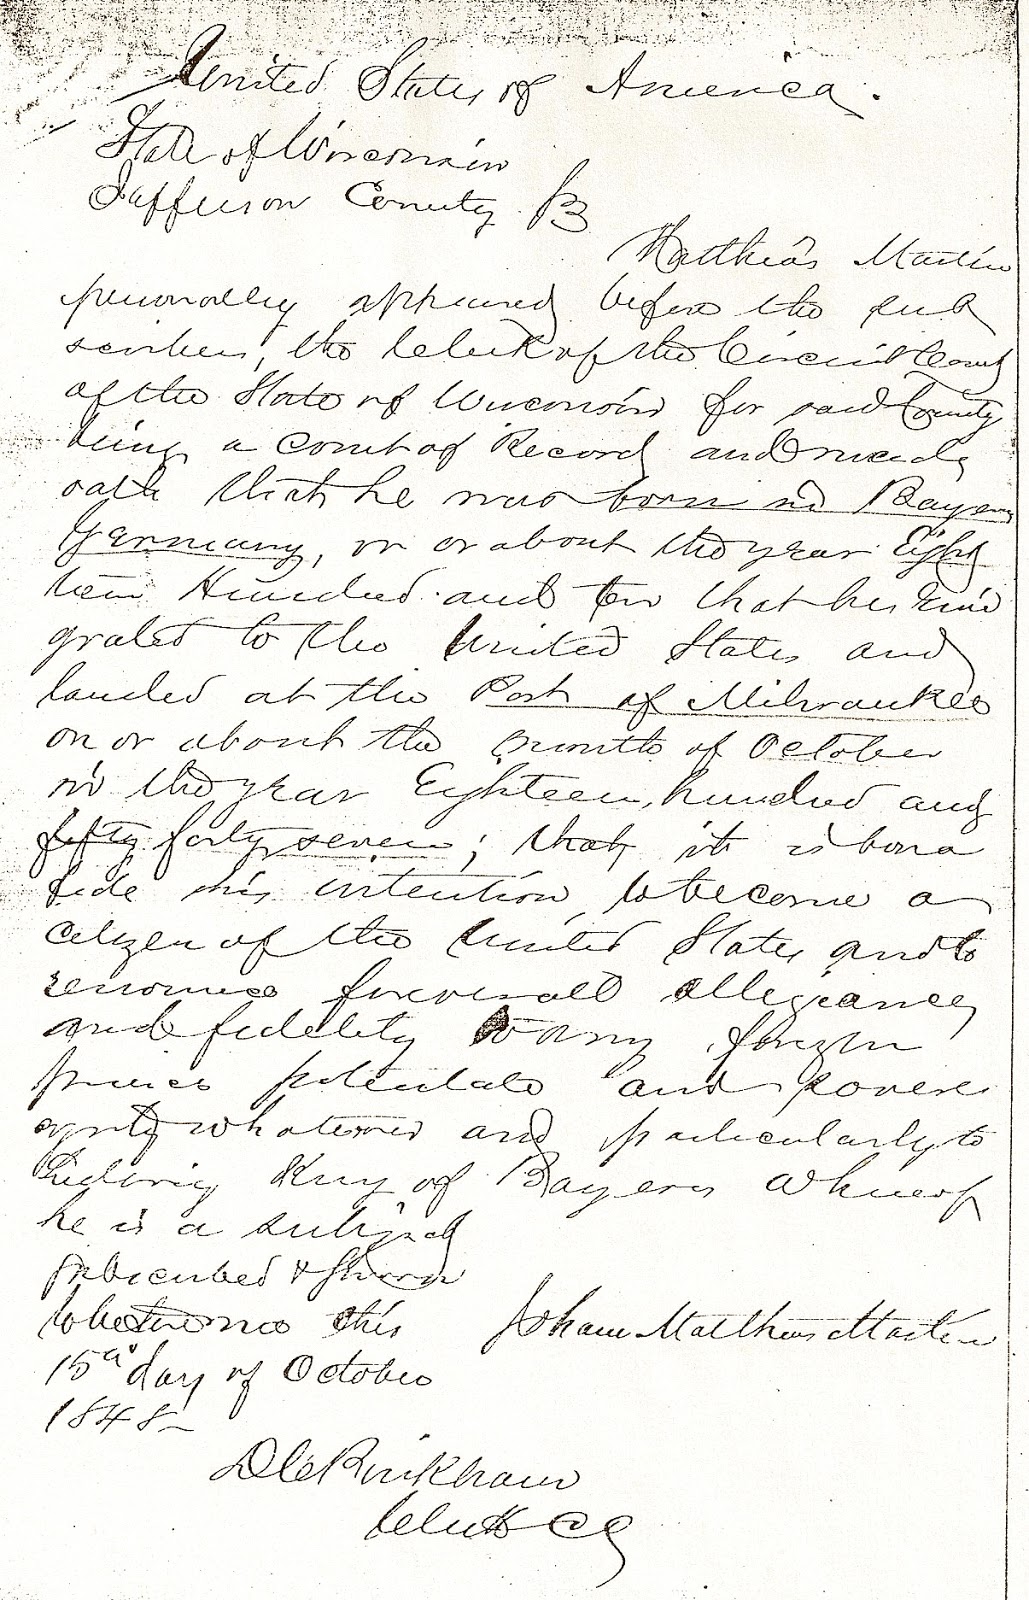 United States of America.
State of Wisconsin
Jefferson County SS
Matthias Martin
personally appeared before the sub
scriber, the Clerk of the Circuit Court
of the State of Wisconsin for said County
being a Court of Record and made
oath that he was born in Bayern
Germany, on or about the year Eigh
teen Hundred and ten that he emi
grated to the United States and
landed at the Port of Milwaukee
on or about the month of October
in the year Eighteen hundred and
fifty forty seven; that it is bona
fide his intention to become a
citizen of the United States and to
renounce forever all allegiance
and fidelity to any foreign
prince potentate and sovere
ignty whatever and particularly to
Ludwig King of Bayern whereof
he is a subject
Subscribed & Sworn
to before me this Johann Matthias Martin
15th day of October
1848
Clerk CC